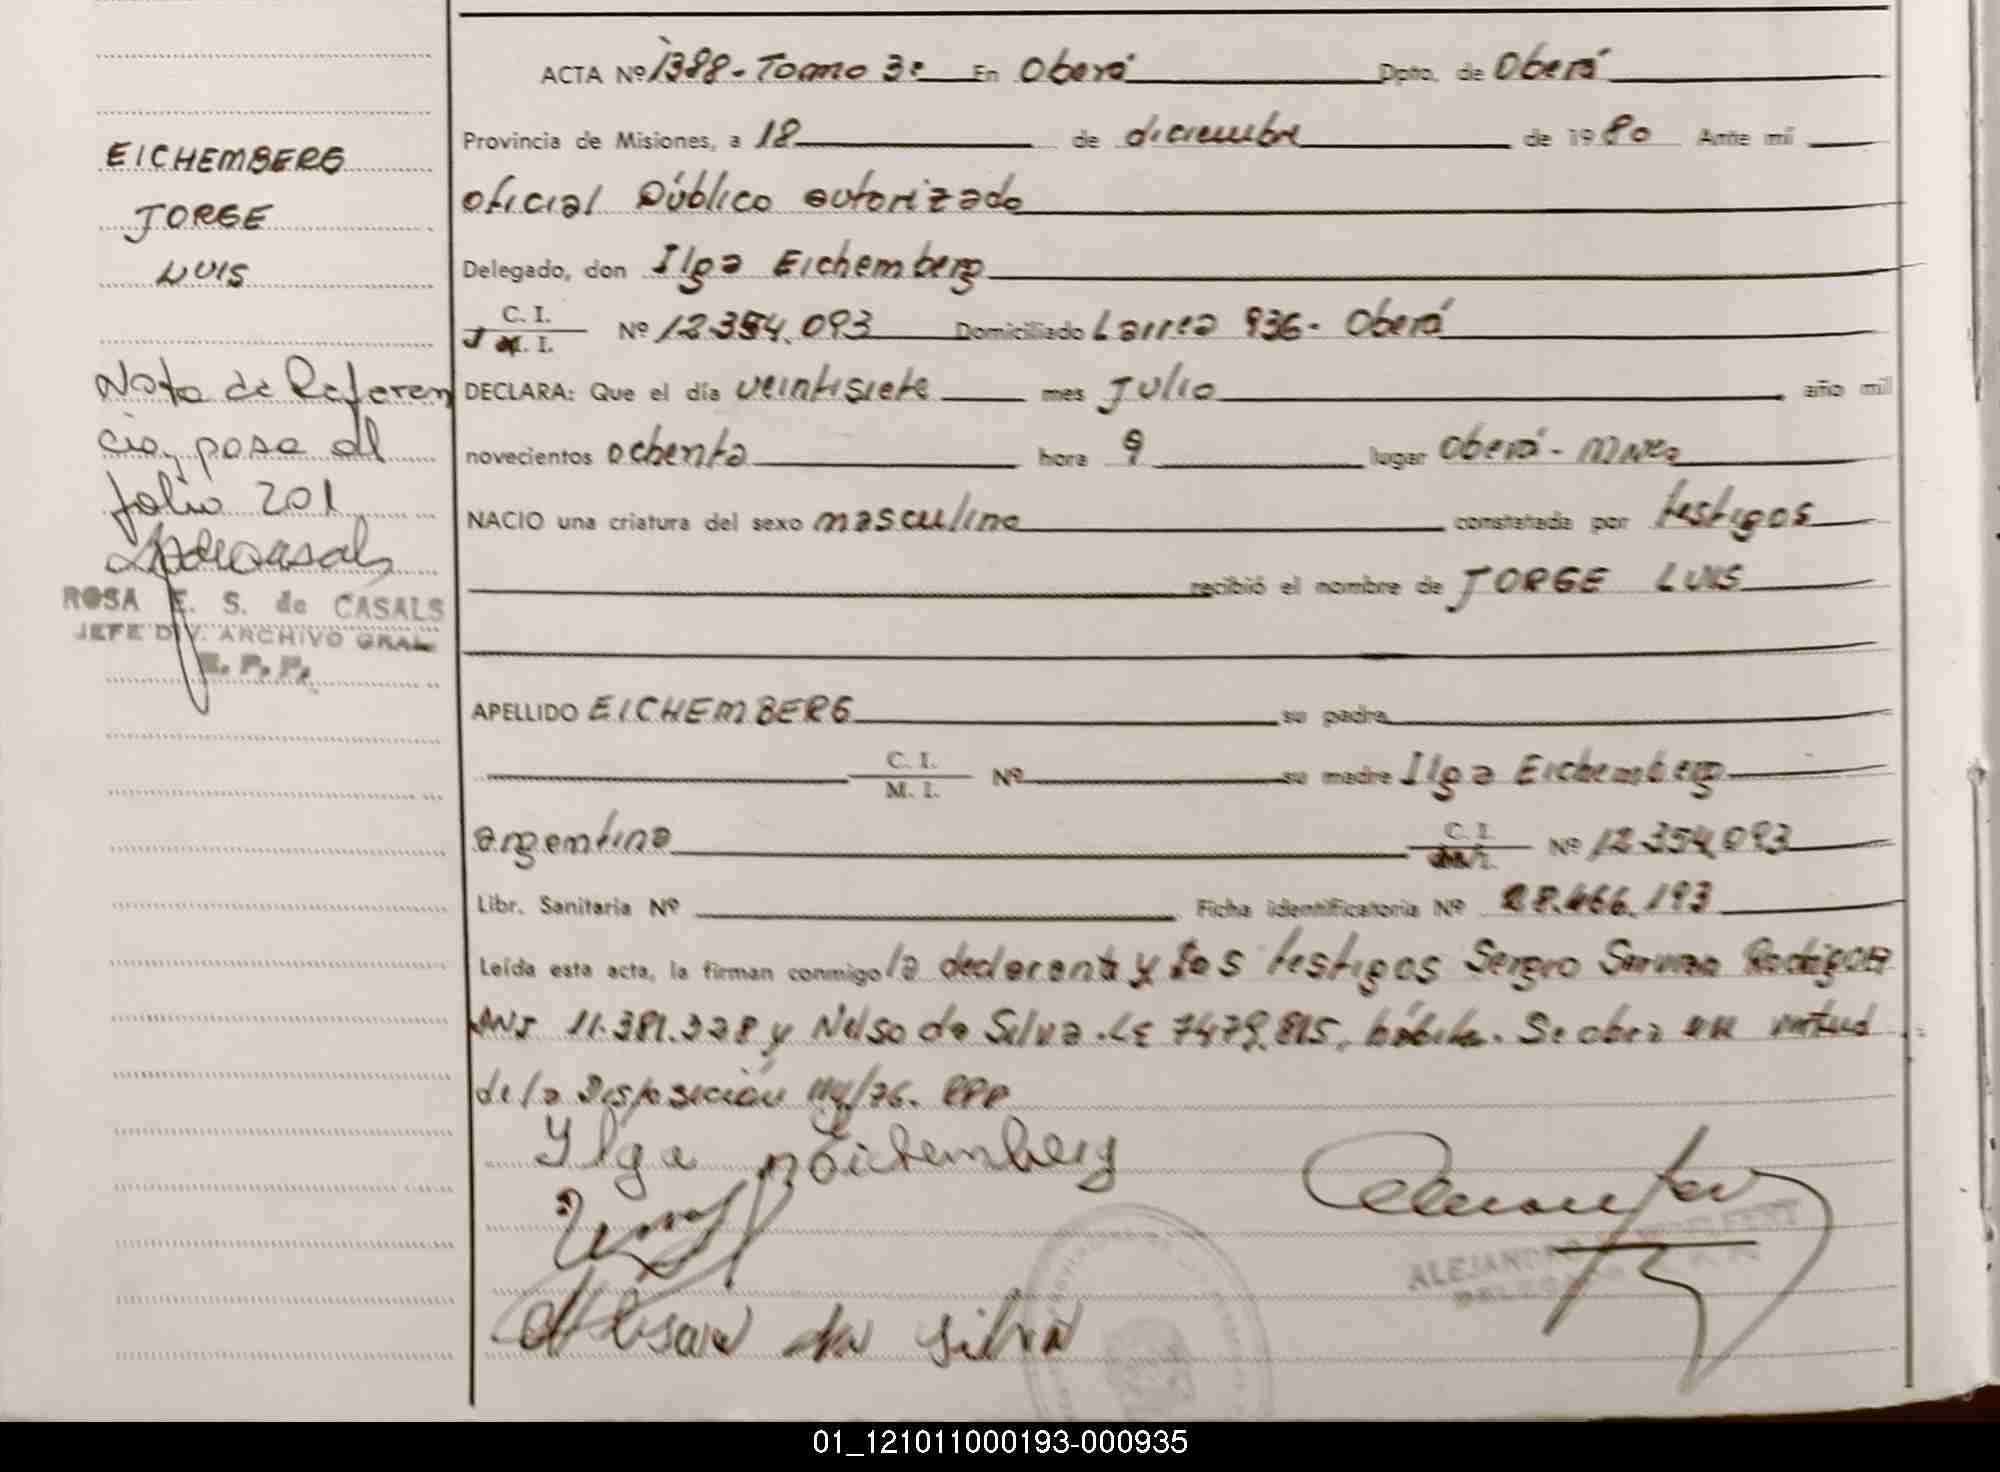 ACTA Nº 1388 - Tomo 3º En Oberá Dpto. de Oberá
Provincia de Misiones, a 18 de diciembre de 1980 Ante mí
oficial Público autorizado
Delegado, don Ilga Eichemberg
C. I.
M. I.
Nº 12.354.093 Domiciliado Larrea 936 - Oberá
DECLARA: Que el día veintisiete mes Julio año mil
novecientos ochenta hora 9 lugar Oberá -
NACIO una criatura del sexo masculino constatada por testigos
recibió el nombre de JORGE LUIS
APELLIDO EICHEMBERG su padre
C. I.
M. I.
Nº su madre Ilga Eichemberg
argentina C. I.
Nº 12.354.093
Libr. Sanitaria Nº Ficha identificatoria Nº 28.466.193
Leída esta acta, la firman conmigo la declarante y los testigos Sergio Rodriguez
DNI 11.381.328 y Nelso da Silva. LE 7479.815, hábiles. Se obra en virtud
de la Disposición 114/76. RPP
Ylga Eichemberg
da Silva
ALEJANDRO
EICHEMBERG
JORGE
LUIS
Nota de Referen
cia, pasa al
folio 201
ROSA E. S. de CASALS
JEFE DIV. ARCHIVO GRAL.
R. P. P.
01_121011000193-000935